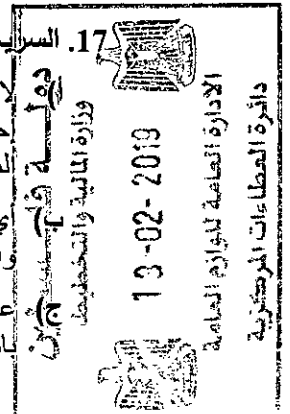 17. السر
دولة فلسطين
وزارة المالية والتخطيط
13-02-2019
الادارة العامة للوازم العامة
دائرة العطاءات المركزية